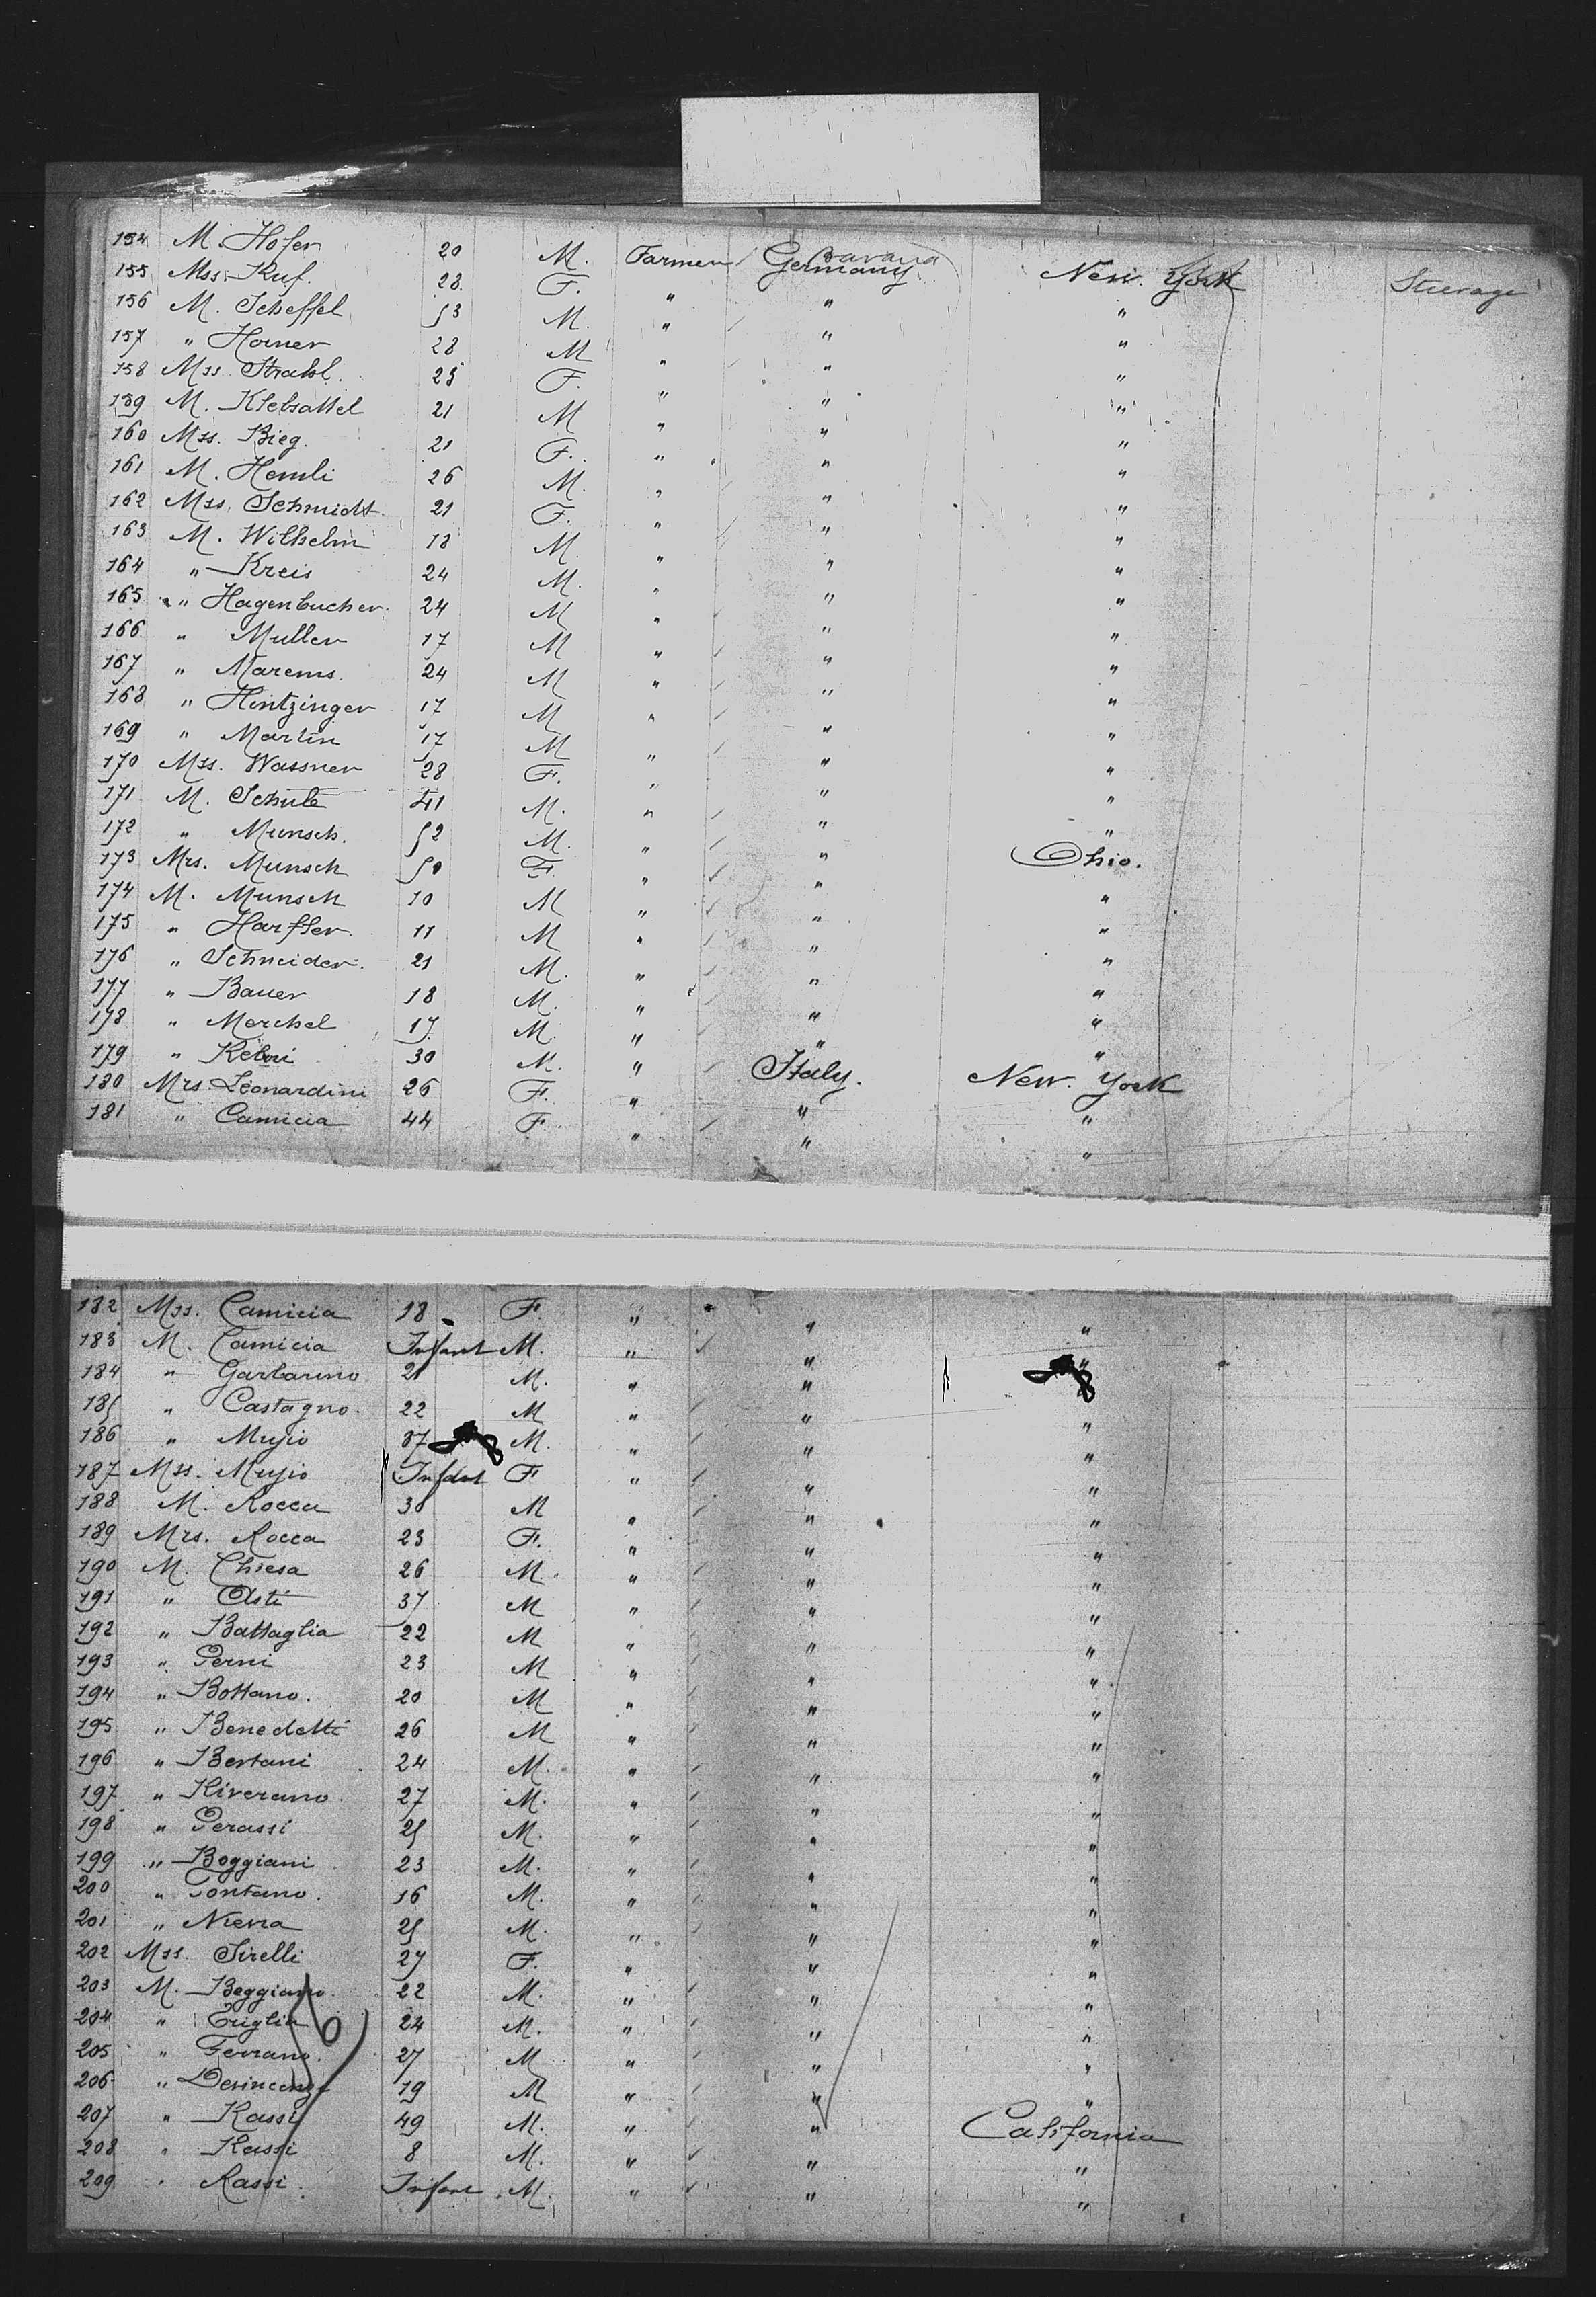 154 M. Hofer 20 M. Farmer Germany Bavaria New York Steerage
155 Mss. Ruf. 28 F. " " "
156 M. Scheffel 53 M. " " "
157 " Horner 28 M " " "
158 Mss. Strahl. 25 F. " " "
159 M. Klebsattel 21 M " " "
160 Mss. Bieg. 21 F. " " "
161 M. Hemli 26 M. " " "
162 Mss. Schmidt 21 F. " " "
163 M. Wilhelm 18 M. " " "
164 " Kreis 24 M. " " "
165 " Hagenbucher. 24 M " " "
166 " Muller 17 M " " "
167 " Marems. 24 M " " "
168 " Hintzinger 17 M " " "
169 " Martin 17 M " " "
170 Mss. Wassner 28 F. " " "
171 M. Schute 41 M. " " "
172 " Munsch. 52 M. " " Ohio.
173 Mrs. Munsch 50 F. " " "
174 M. Munsch 10 M " " "
175 " Harfser. 11 M " " "
176 " Schneider. 21 M. " " "
177 " Bauer 18 M. " " "
178 " Merchel 17. M. " " "
179 " 30 M. " Italy. New. York
180 Mrs. Leonardini 26 F. " " "
181 " Camicia 44 F " " "
182 Mss. Camicia 18 F. " " "
183 M. Camicia Infant M. " " "
184 " Garbarino 21 M. " " "
185 " Castagno. 22 M " " "
186 " Mujio 37 M. " " "
187 Mss. Mujio Infant F " " "
188 M. Rocca 30 M " " "
189 Mrs. Rocca 23 F. " " "
190 M. Chiesa 26 M. " " "
191 " Asti 37 M " " "
192 " Battaglia 22 M " " "
193 " Perni 23 M " " "
194 " Bottano. 20 M " " "
195 " Benedetti 26 M " " "
196 " Bertani 24 M. " " "
197 " Riverano. 27 M. " " "
198 " Perassi 25 M. " " "
199 " Boggiani 23 M. " " "
200 " Fontano. 16 M. " " "
201 " Niena 25 M. " " "
202 Mss. Sirelli 27 F. " " "
203 M. Beggiano. 22 M. " " "
204 " Triglia 24 M. " " "
205 " Ferrano. 27 M " " "
206 " 19 M " " "
207 " Rassi 49 M. " " California
208 " Rassi 8 M. " " "
209 " Rassi. Infant M. " " "